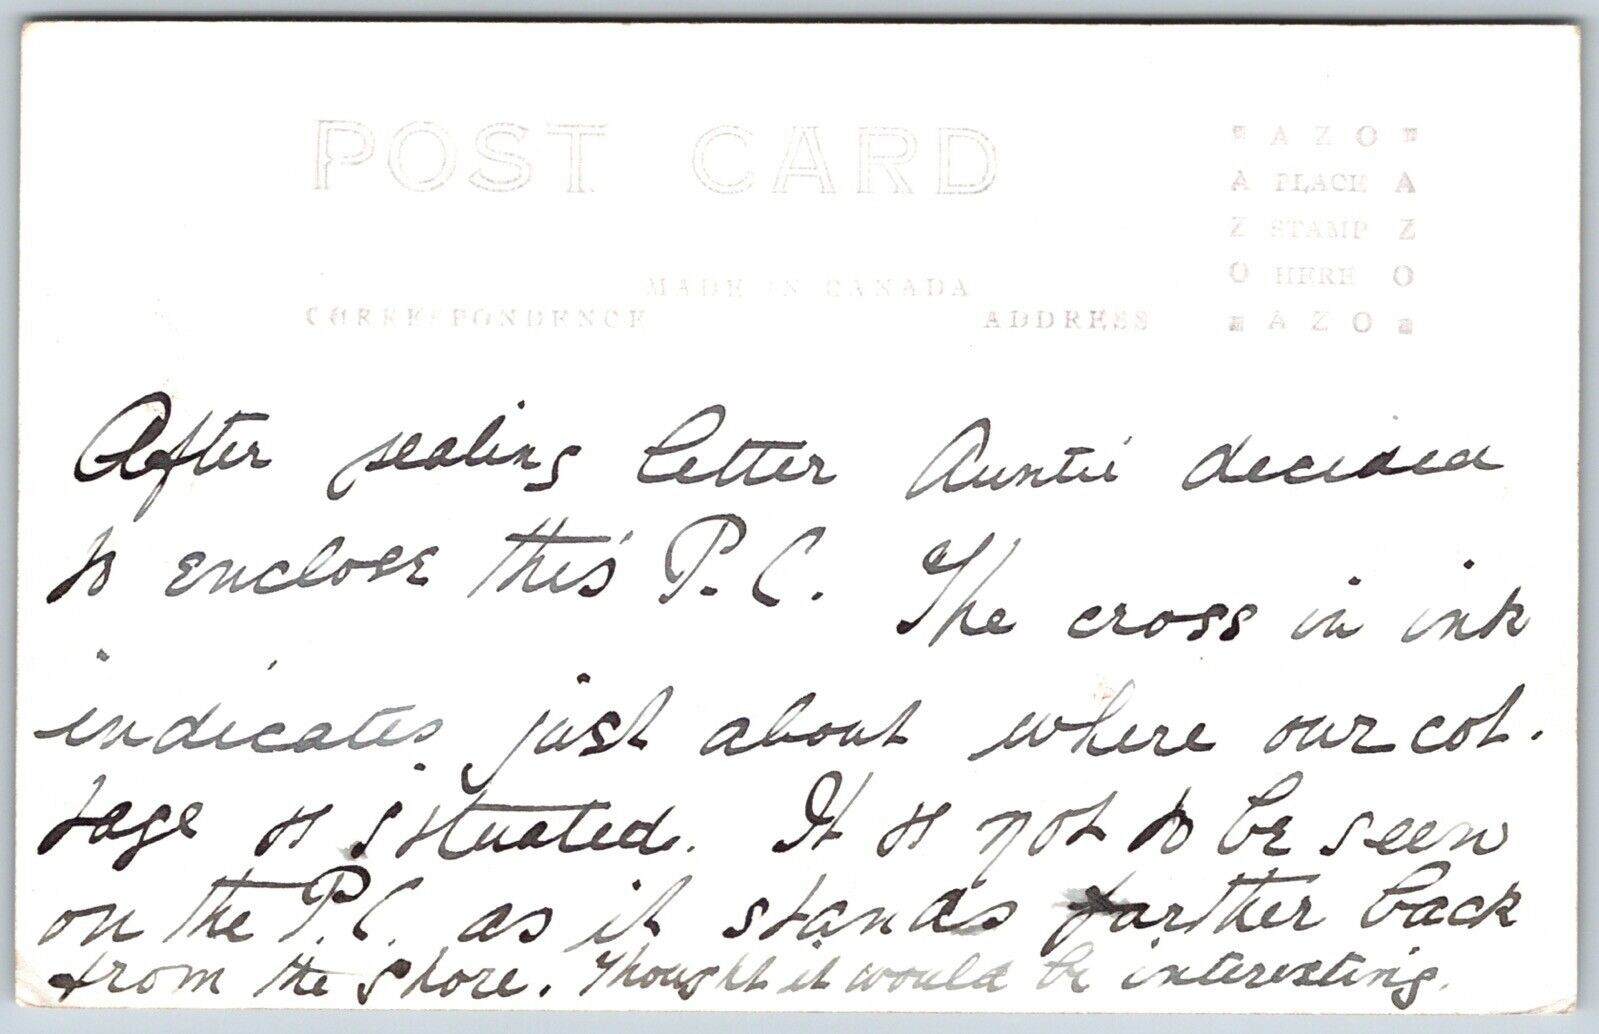 POST CARD
AZO
A PLACE A
Z STAMP Z
O HERE O
AZO
MADE IN CANADA
CORRESPONDENCE ADDRESS
After sealing letter Auntie decided
to enclose this P.C. The cross in ink
indicates just about where our cot-
tage is situated. It is not to be seen
on the P.C. as it stands farther back
from the shore. Thought it would be interesting.